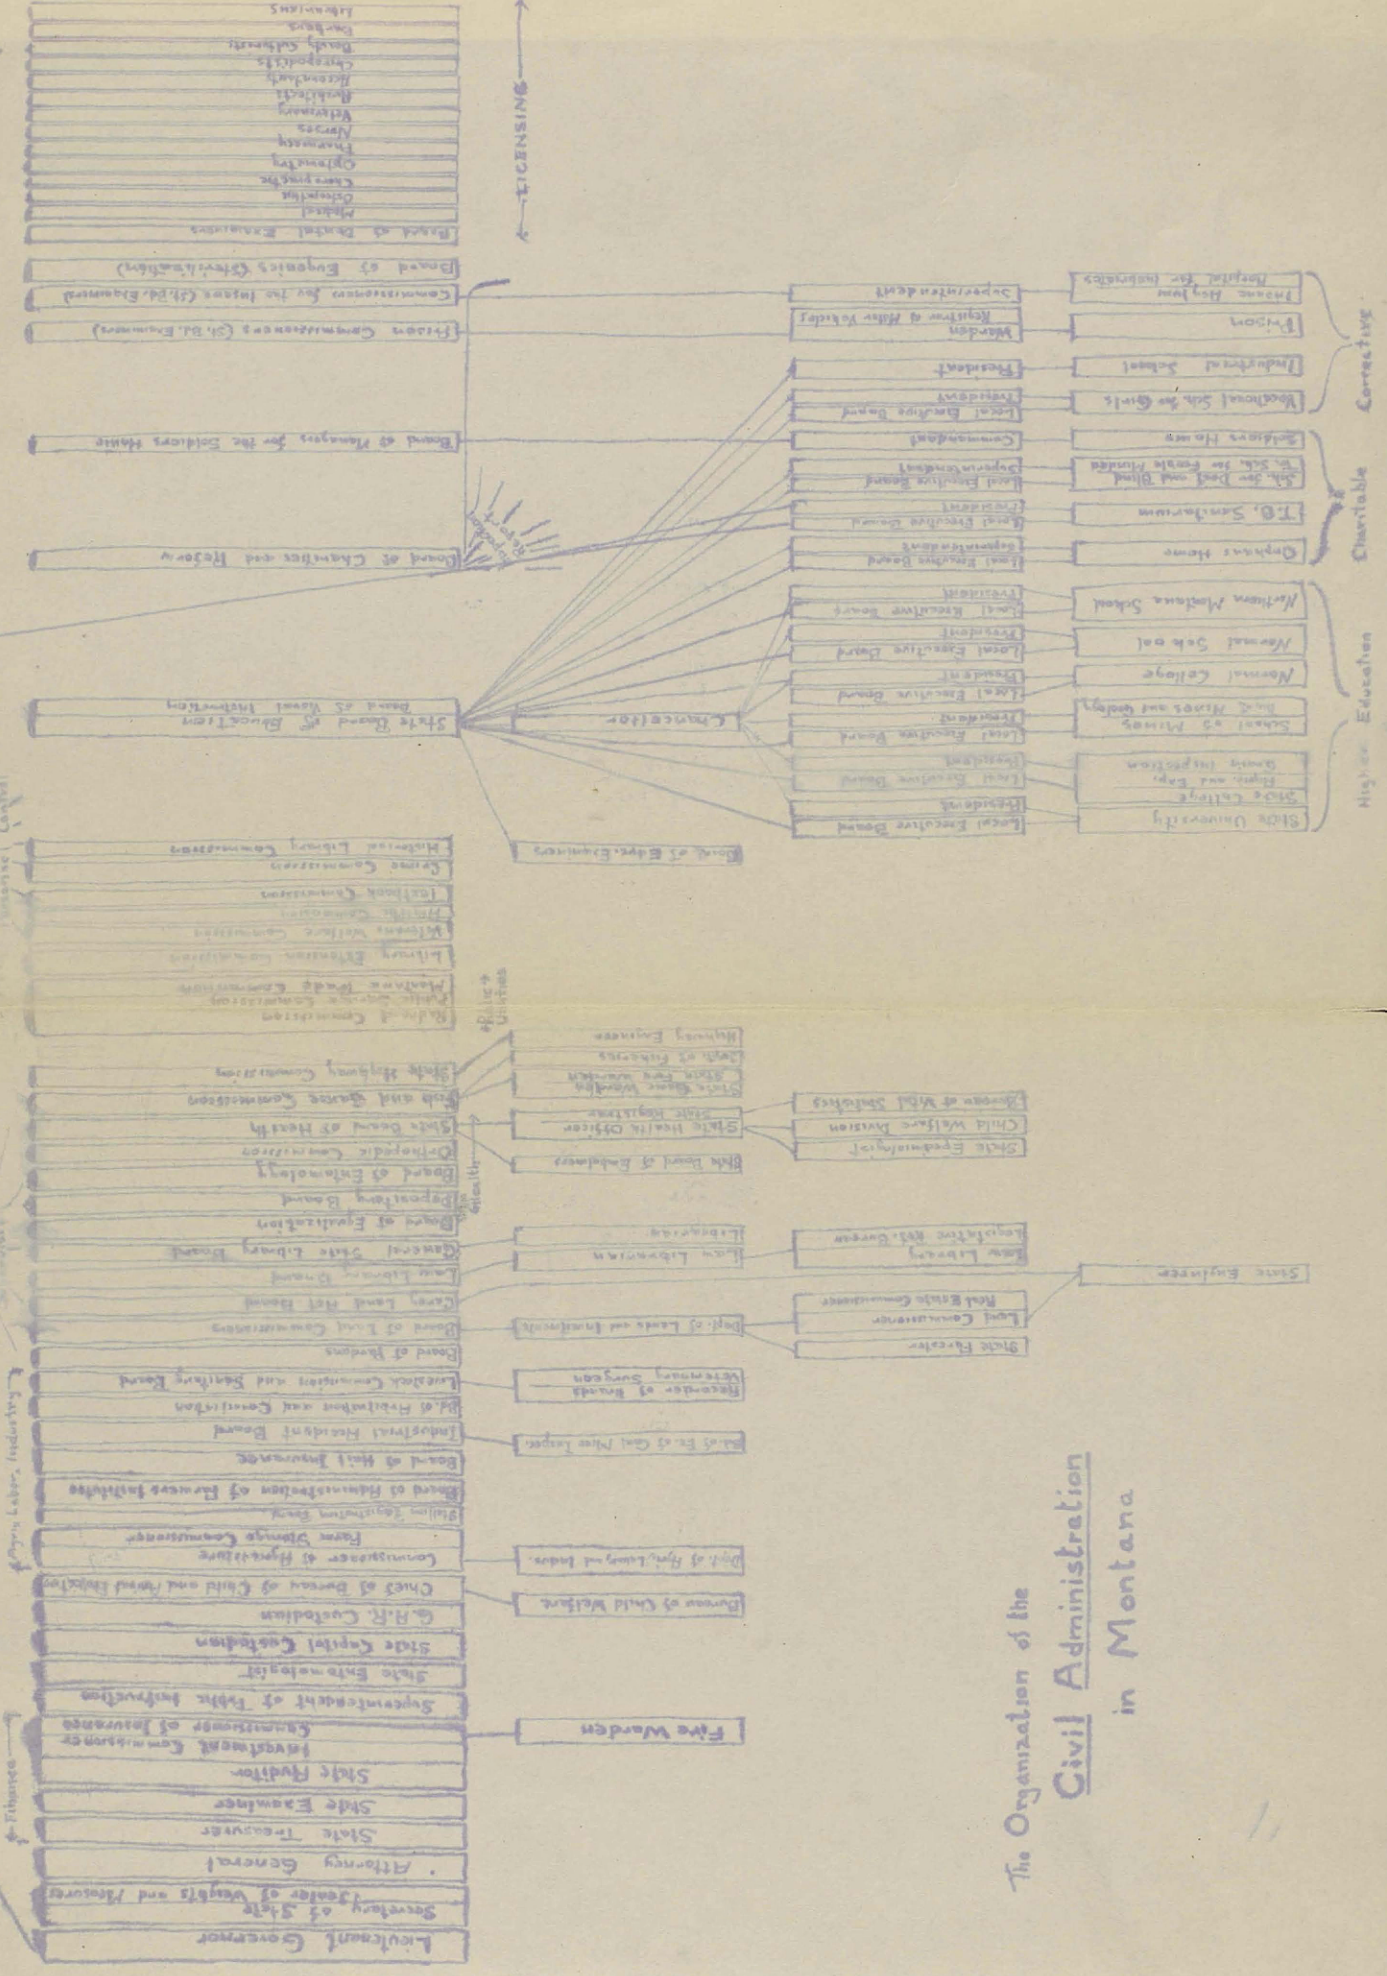 The Organization of the
Civil Administration
in Montana
Lieutenant Governor
Secretary of State
Sealer of Weights and Measures
Attorney General
State Treasurer
State Examiner
State Auditor
Investment Commissioner
Commissioner of Insurance
Superintendent of Public Instruction
State Entomologist
State Capitol Custodian
G.A.R. Custodian
Chief of Bureau of Child and Animal Protection
Commissioner of Agriculture
Farm Storage Commissioner
Stallion Registration Board
Board of Administration of Farmers Institutes
Board of Hail Insurance
Industrial Accident Board
Bd. of Arbitration and Conciliation
Livestock Commission and Sanitary Board
Board of Pardons
Board of Land Commissioners
Carey Land Act Board
Law Library Board
General State Library Board
Board of Equalization
Depository Board
Board of Entomology
Orthopedic Commission
State Board of Health
Fish and Game Commission
State Highway Commission
Railroad Commission
Public Service Commission
Montana Trade Commission
Library Extension Commission
Veterans Welfare Commission
Athletic Commission
Textbook Commission
Crime Commission
Historical Library Commission
State Board of Education
Board of Visual Instruction
Board of Charities and Reform
Board of Managers for the Soldiers Home
Prison Commissioners (St. Bd. Examiners)
Commissioners for the Insane (St. Bd. Examiners)
Board of Eugenics (Sterilization)
Board of Dental Examiners
Medical
Osteopathic
Chiropractic
Optometry
Pharmacy
Nurses
Veterinary
Architects
Accountants
Chiropodists
Beauty Culturists
Barbers
Librarians
Finance
Agri., Labor, Industry
Health
Public Utilities
LICENSING
Fire Warden
Bureau of Child Welfare
Dept. of Agri., Labor, and Indus.
Bd. of Ex. of Coal Mine Inspec.
Recorder of Brands
Veterinary Surgeon
Dept. of Lands and Investments
Law Librarian
Librarian
State Board of Embalmers
State Health Officer
State Registrar
State Game Warden
State Fire Warden
Dept. of Fisheries
Highway Engineer
Board of Educ. Examiners
Chancellor
Supervisor
Report
State Forester
Land Commissioner
Real Estate Commissioner
Law Library
Legislative Ref. Bureau
State Epedmiologist
Child Welfare Division
Bureau of Vital Statistics
State Engineer
Local Executive Board
President
Local Executive Board
President
Local Executive Board
President
Local Executive Board
President
Local Executive Board
President
Local Executive Board
President
Local Executive Board
Superintendent
Local Executive Board
President
Local Executive Board
Superintendent
Commandant
Local Executive Board
President
President
Warden
Registrar of Motor Vehicles
Superintendent
State University
State College
Agric. and Exp.
Grain Inspection
School of Mines
Bur. Mines and Geology
Normal College
Normal School
Northern Montana School
Orphans Home
T.B. Sanitarium
Sch. for Deaf and Blind
Tr. Sch. for Feeble Minded
Soldiers Home
Vocational Sch. for Girls
Industrial School
Prison
Insane Asylum
Hospital for Inebriates
Higher Education
Charitable
Corrective